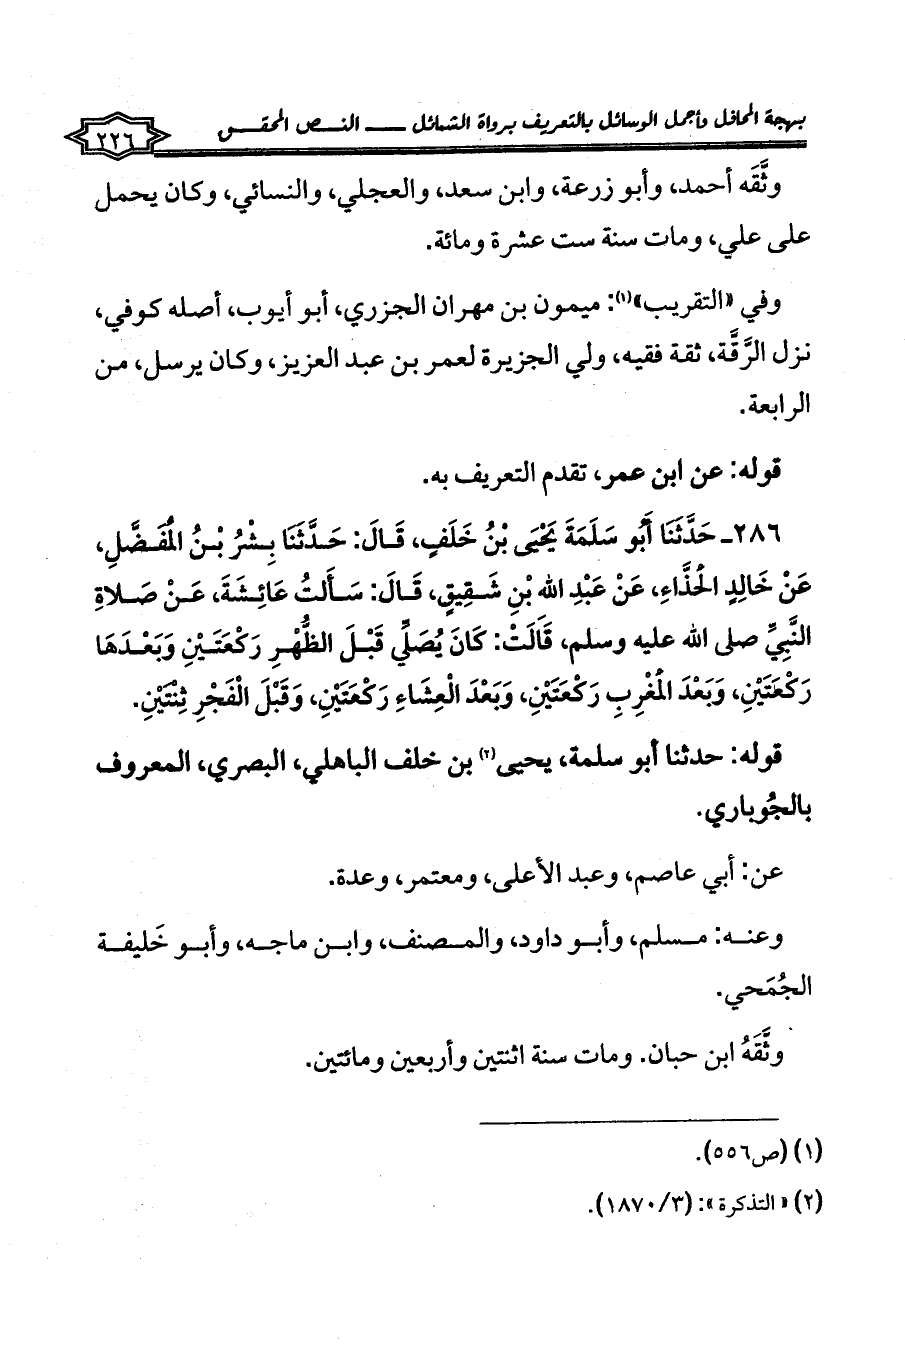 بهجة المحافل وأجمل الوسائل بالتعريف برواة الشمائل ــــ النص المحقق
٢٢٦
وثَّقَه أحمد، وأبو زرعة، وابن سعد، والعجلي، والنسائي، وكان يحمل
على علي، ومات سنة ست عشرة ومائة.
وفي «التقريب»(١): ميمون بن مهران الجزري، أبو أيوب، أصله كوفي،
نزل الرَّقَّة، ثقة فقيه، ولي الجزيرة لعمر بن عبد العزيز، وكان يرسل، من
الرابعة.
قوله: عن ابن عمر، تقدم التعريف به.
٢٨٦ـ حَدَّثَنَا أَبُو سَلَمَةَ يَحْيَى بْنُ خَلَفٍ، قَالَ: حَدَّثَنَا بِشْرُ بْنُ المُفَضَّلِ،
عَنْ خَالِدٍ الحُذَّاءِ، عَنْ عَبْدِ الله بْنِ شَقِيقٍ، قَالَ: سَأَلتُ عَائِشَةَ، عَنْ صَلاةِ
النَّبِيِّ صلى الله عليه وسلم، قَالَتْ: كَانَ يُصَلِّي قَبْلَ الظُّهْرِ رَكْعَتَيْنِ وَبَعْدَهَا
رَكْعَتَيْنِ، وَبَعْدَ المُغْرِبِ رَكْعَتَيْنِ، وَبَعْدَ الْعِشَاءِ رَكْعَتَيْنِ، وَقَبْلَ الْفَجْرِ ثِنْتَيْنِ.
قوله: حدثنا أبو سلمة، يحيى(٢) بن خلف الباهلي، البصري، المعروف
بالجُوباري.
عن: أبي عاصم، وعبد الأعلى، ومعتمر، وعدة.
وعنه: مسلم، وأبو داود، والمصنف، وابن ماجه، وأبو خَليفة
الجُمَحي.
وثَّقَهُ ابن حبان. ومات سنة اثنتين وأربعين ومائتين.
(١) (ص٥٥٦).
(٢) «التذكرة»: (٣/١٨٧٠).